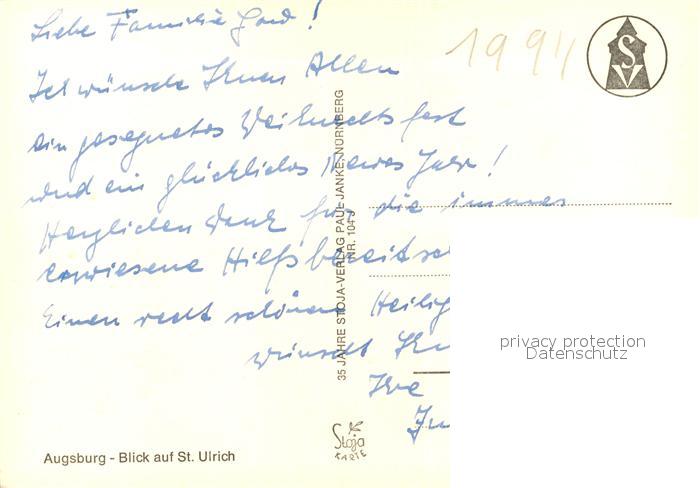 Liebe Familie !
1994
Ich wünsche Ihnen Allen
ein gesegnetes Weihnachtsfest
und ein glückliches Neues Jahr!
Herzlichen Dank für die immer
erwiesene Hilfsbereitsc
Einen recht schönen Heilig
wünscht Ihn
Ihre
S
V
35 JAHRE STOJA-VERLAG PAUL JANKE, NÜRNBERG
NR. 104
privacy protection
Datenschutz
Stoja
KARTE
Augsburg - Blick auf St. Ulrich